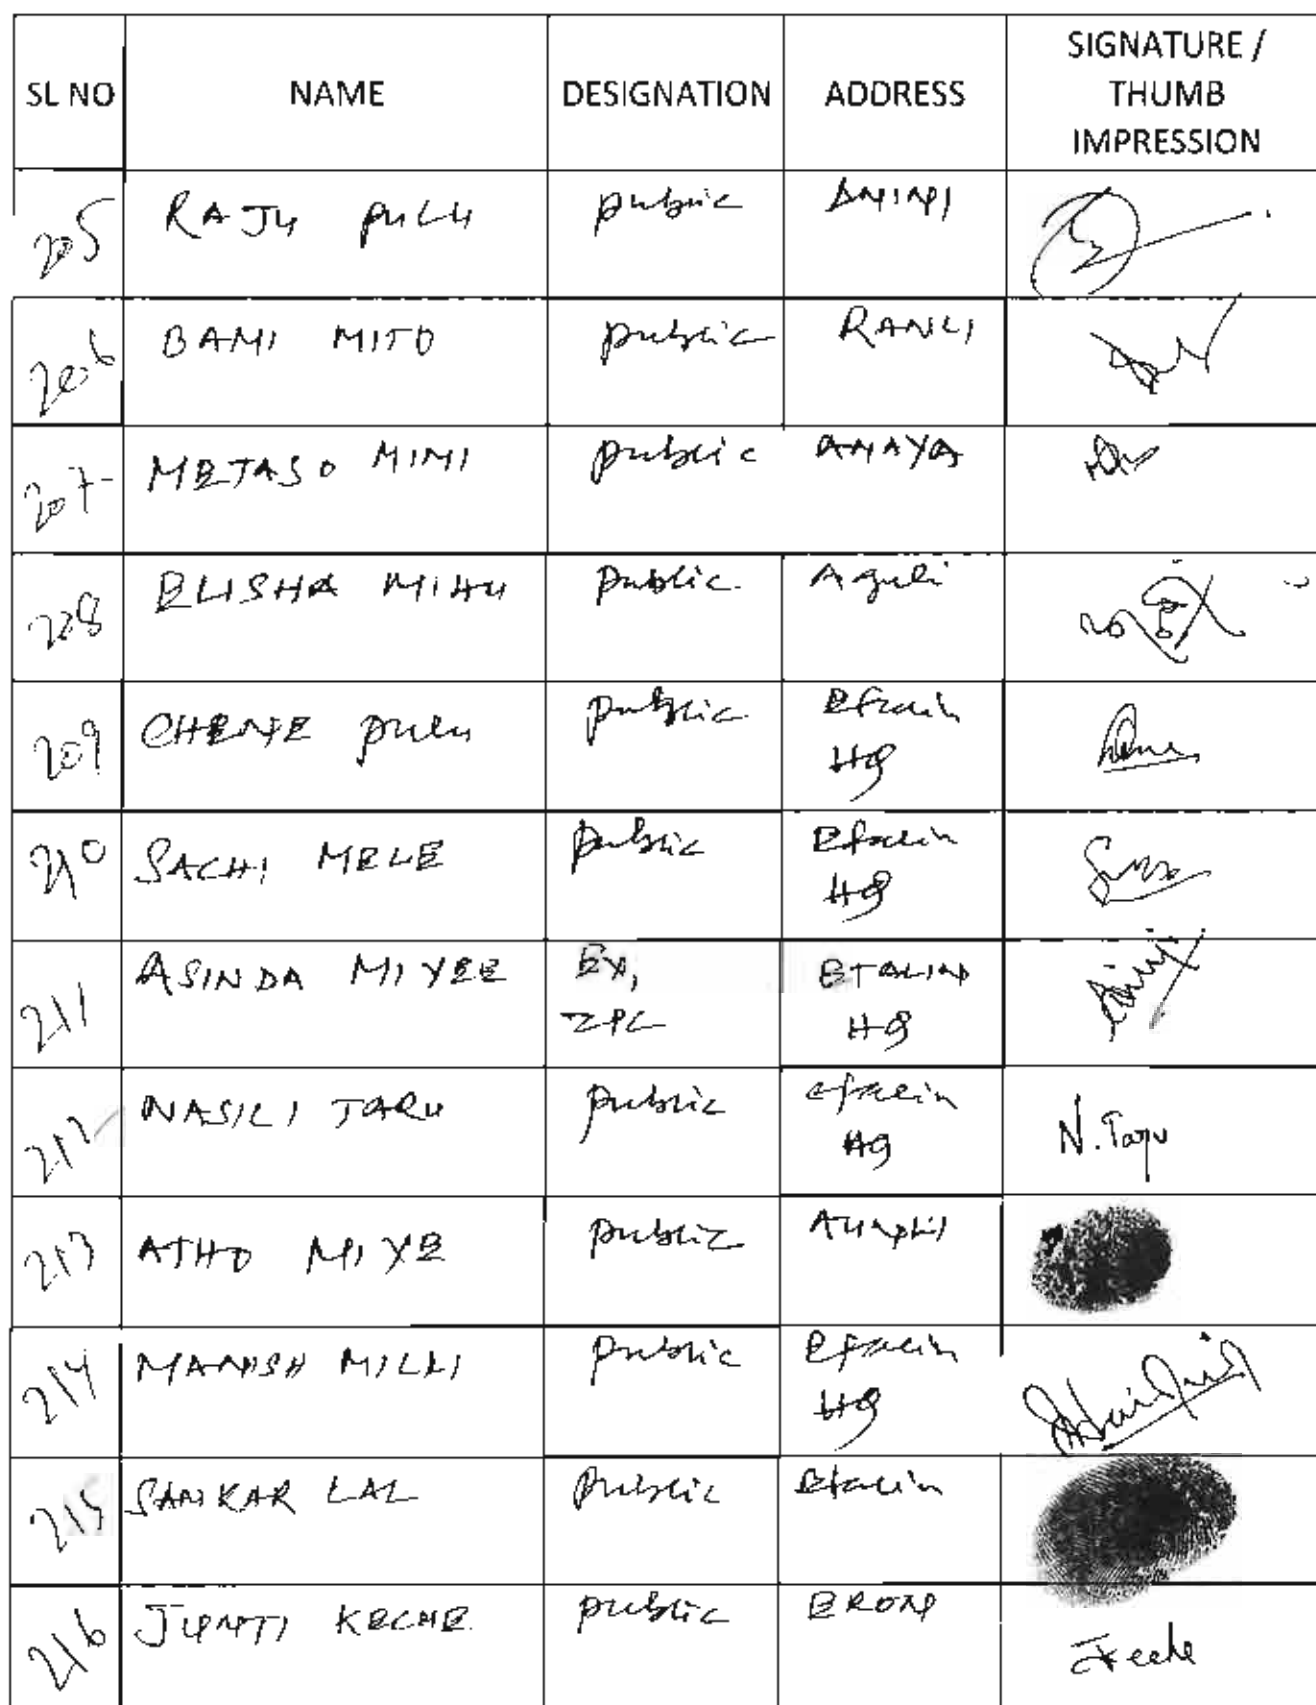 SL NO NAME DESIGNATION ADDRESS SIGNATURE / THUMB IMPRESSION
205 RAJU PULU public
206 BAMI MITO public RANLI
207 METASO MIMI public AMAYA
208 ELISHA MIHU Public Aguli
209 CHENE PULU public Etalin HQ
210 SACHI MELE public Etalin HQ
211 ASINDA MIYEE EX, ZPC ETALIN HQ
212 NASILI TARU public etalin HQ N. Taru
213 ATHO MIYE public
214 MANISH MILLI public Etalin HQ
215 SANKAR LAL Public Etalin
216 KECHE public